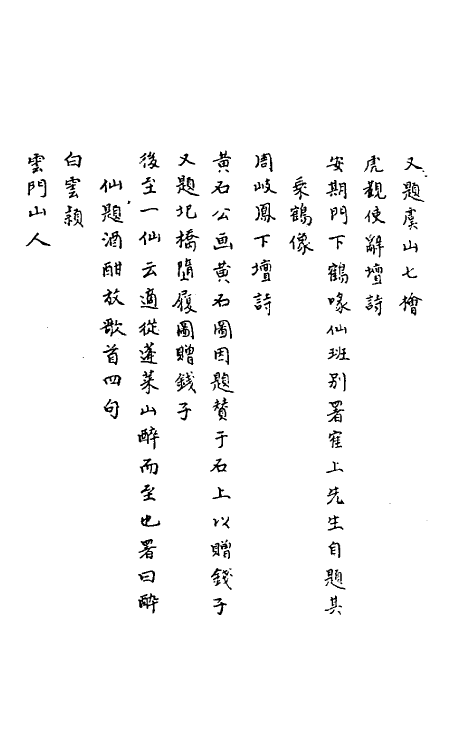 又題虞山七檜
虎觀使辭壇詩
安期門下鶴喙仙班别署隺上先生自題其
乘鶴像
周岐鳳下壇詩
黄石公画黄石圖因題賛于石上以贈錢子
又題圯橋墮履圖贈錢子
後至一仙云適從蓬萊山醉而至也署曰醉
仙題酒酣放歌首四句
白雲頴
雲門山人